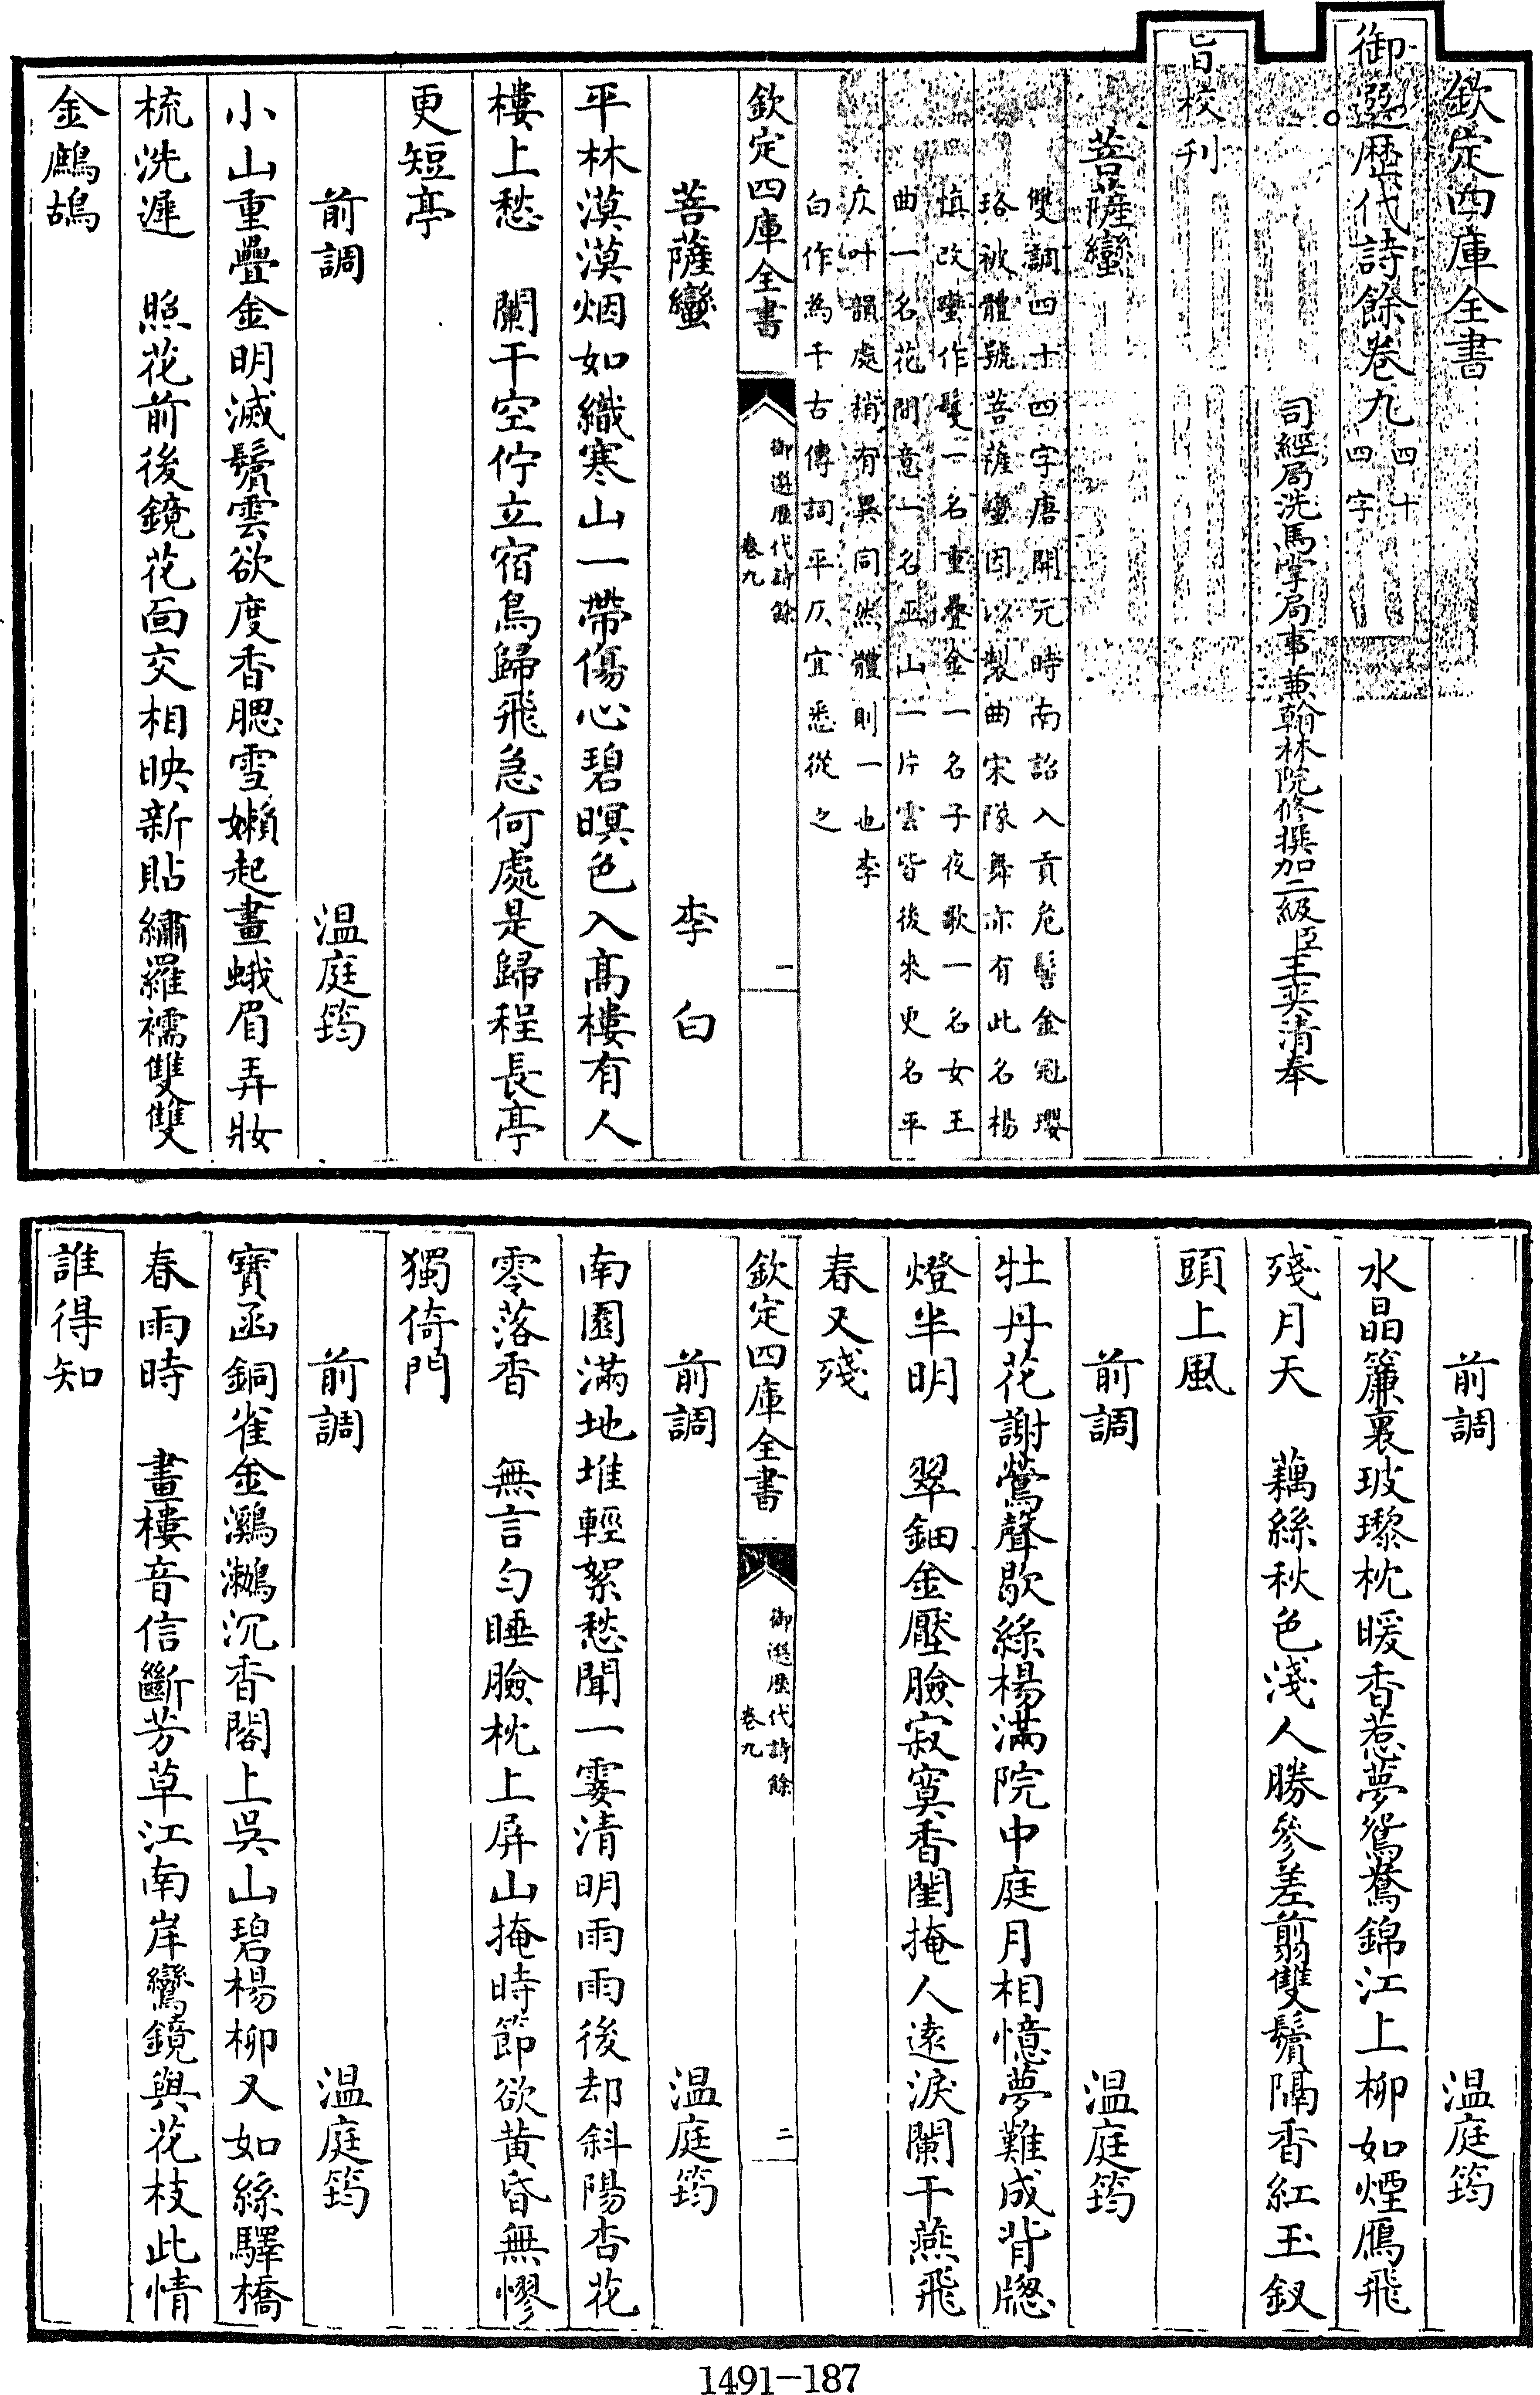 欽定四庫全書
御選歷代詩餘卷九四十四字
司經局洗馬掌局事兼翰林院修撰加二級臣王奕清奉
旨校刊
菩薩蠻
雙調四十四字唐開元時南詔入貢危髻金冠瓔
珞被體號菩薩蠻因以製曲宋隊舞亦有此名楊
慎改蠻作鬘一名重疊金一名子夜歌一名女王
曲一名花間意一名巫山一片雲皆後來更名平
仄叶韻處稍有異同然體則一也李
白作為千古傳詞平仄宜悉從之
欽定四庫全書
御選歷代詩餘
卷九
一
菩薩蠻 李白
平林漠漠烟如織寒山一帶傷心碧暝色入高樓有人
樓上愁 闌干空佇立宿鳥歸飛急何處是歸程長亭
更短亭
前調 温庭筠
小山重疊金明滅鬢雲欲度香腮雪嬾起畫蛾眉弄妝
梳洗遲 照花前後鏡花面交相映新貼繡羅襦雙雙
金鷓鴣
前調 温庭筠
水晶簾裏玻瓈枕暖香惹夢鴛鴦錦江上柳如煙鴈飛
殘月天 藕絲秋色淺人勝參差翦雙鬢隔香紅玉釵
頭上風
前調 温庭筠
牡丹花謝鶯聲歇綠楊滿院中庭月相憶夢難成背牕
燈半明 翠鈿金壓臉寂寞香閨掩人遠淚闌干燕飛
春又殘
欽定四庫全書
御選歷代詩餘
卷九
二
前調 温庭筠
南園滿地堆輕絮愁聞一霎清明雨雨後却斜陽杏花
零落香 無言勻睡臉枕上屏山掩時節欲黃昏無憀
獨倚門
前調 温庭筠
寶函鈿雀金鸂鶒沉香閣上吳山碧楊柳又如絲驛橋
春雨時 畫樓音信斷芳草江南岸鸞鏡與花枝此情
誰得知
1491-187